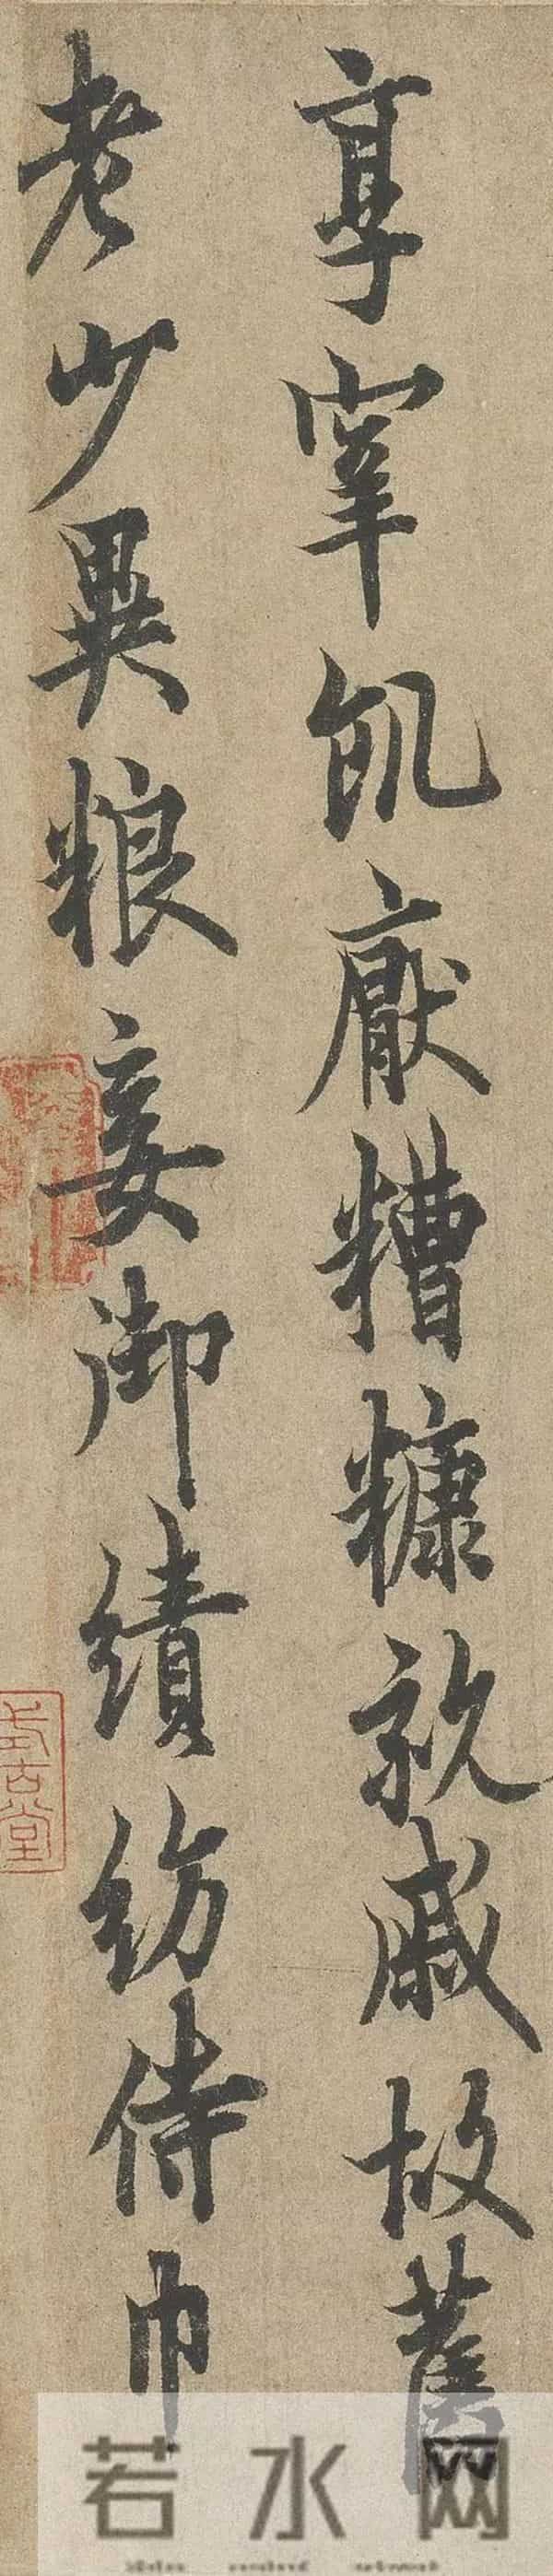 享宰飢厭糟糠親戚故舊
老少異粮妾御績紡侍巾
式古堂
若水网